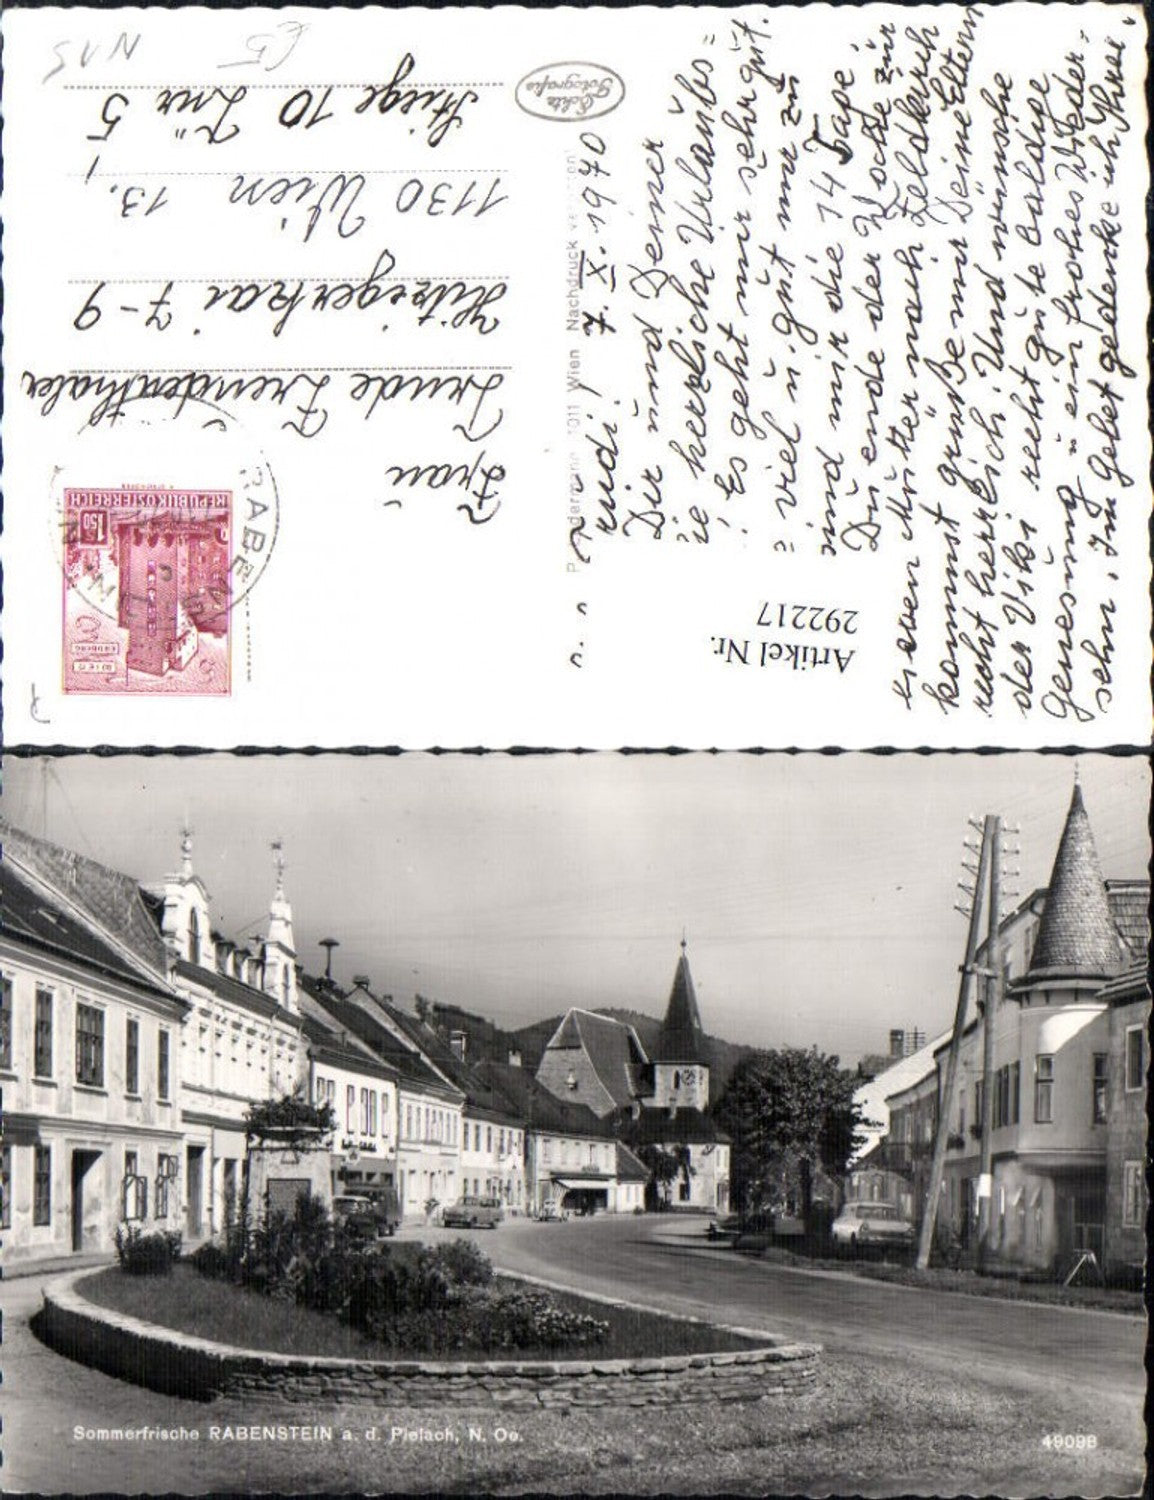 Frau
Trude Freudenthaler
Hitzigerkai 7-9
1130 Wien 13.,
Stiege 10 Tür 5
N13
£5
Echte
Fotografie
REPUBLIK ÖSTERREICH
1.50
ERDBERG
RABEN
Nachdruck
1011 Wien
Artikel Nr.
292217
7. IX. 1970
Dir und Deiner
ie herzliche Urlaubs=
. Es geht mir sehr gut.
= viel u. gut nur zu
sind mir die 14 Tage.
Du ende der Woche zur
Mutter nach Feldkirch
kommst grüße mir Deine Eltern
recht herzlich. Und wünsche
der Viki recht gute baldige
Genesung u ein frohes Wieder-
sehn. Im Gebet gedenke ich Ihrer.
Sommerfrische RABENSTEIN a. d. Pielach, N. Oe.
49098